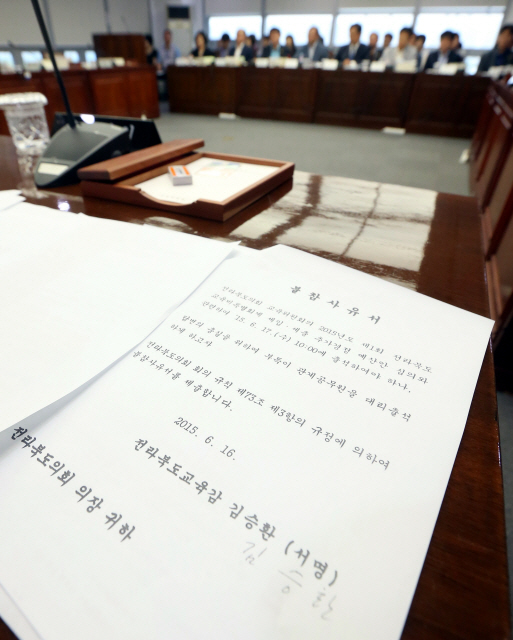 불참사유서
전라북도의회 교육위원회의 2015년도 제1회 전라북도
교육비특별회계 세입·세출 추가경정 예산안 심의와
관련하여 '15. 6. 17.(수) 10:00에 출석하여야 하나,
답변의 충실을 위하여 부득이 관계공무원을 대리출석
하게 하고자
전라북도의회 회의 규칙 제73조 제3항의 규정에 의하여
불참사유서를 제출합니다.
2015. 6. 16.
전라북도교육감 김승환 (서명)
김승환
전라북도의회 의장 귀하